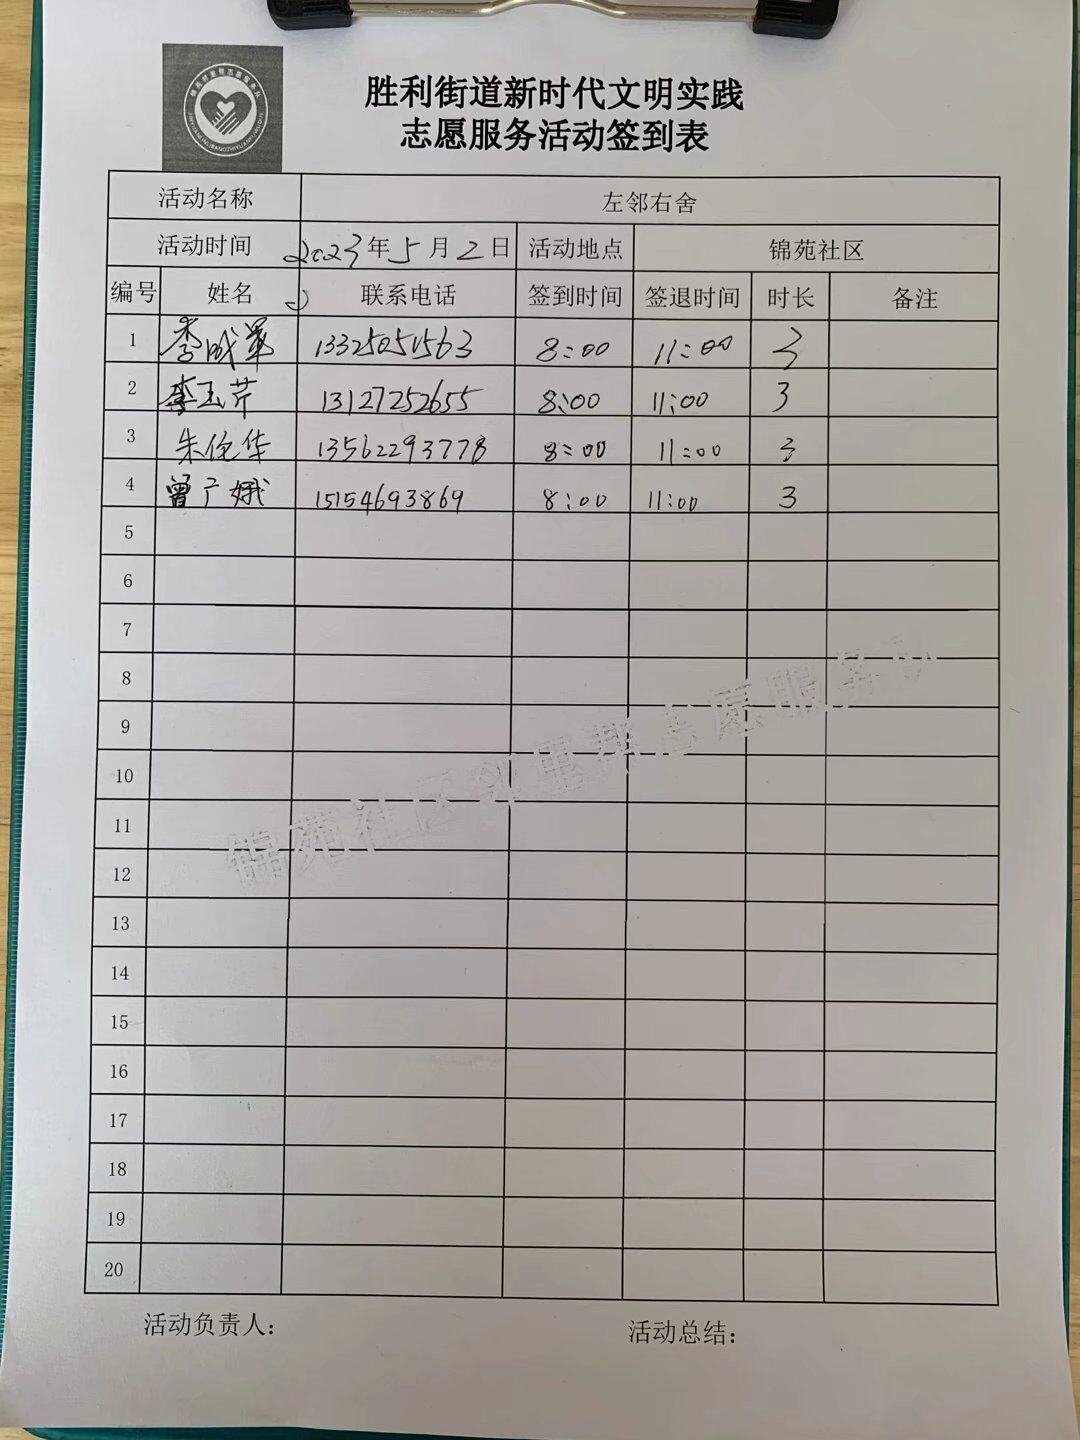 胜利街道新时代文明实践
志愿服务活动签到表
活动名称 左邻右舍
活动时间 2023年5月2日 活动地点 锦苑社区
编号 姓名 联系电话 签到时间 签退时间 时长 备注
1 李成军 13325051563 8:00 11:00 3
2 李玉芹 13127252655 8:00 11:00 3
3 朱俊华 13562293778 8:00 11:00 3
4 曾广娥 15154693869 8:00 11:00 3
5
6
7
8
9
10
11
12
13
14
15
16
17
18
19
20
锦苑社区邻里帮志愿服务队
活动负责人: 活动总结: